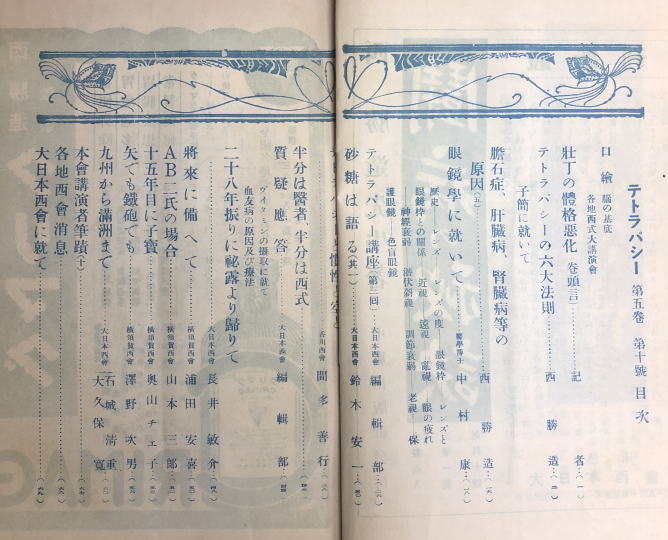 テトラパシー 第五卷 第十號 目次
口繪 腦の基底
各地西式大講演會
壯丁の體格惡化（卷頭言）……記者…（一）
テトラパシーの六大法則……西勝造…（二）
子簡に就いて
膽石症、肝臓病、腎臓病等の
原因（五）……西勝造…（一六）
眼鏡學に就いて……醫學博士 中村康…（一八）
歷史―レンズ レンズの度―眼鏡枠 レンズと
眼鏡枠との關係 近視 遠視 亂視 眼の疲れ
―神經衰弱 潜伏斜視 調節衰弱―老視―保
護眼鏡―色盲眼鏡
テトラパシー講座（第二回）…大日本西會 編輯部…
砂糖は語る（其一）……大日本西會 鈴木安一…
香川西會 間多善行…
半分は醫者 半分は西式
質疑應答……大日本西會 編輯部…
ヴイタミンの攝取に就て
血友病の原因及び療法
二十八年振りに祕露より歸りて
大日本西會 長井敏介…
將來に備へて……橫須賀西會 浦田安喜…
ＡＢ二氏の場合……橫須賀西會 山本三郎…
十五年目に子寶……橫須賀西會 奥山チエ子…
矢でも鐵砲でも……橫須賀西會 澤野次男…
九州から滿洲まで……大日本西會 石城淸重
大久保寬…
本會講演者筆蹟（十）……
各地西會消息……
大日本西會に就て……